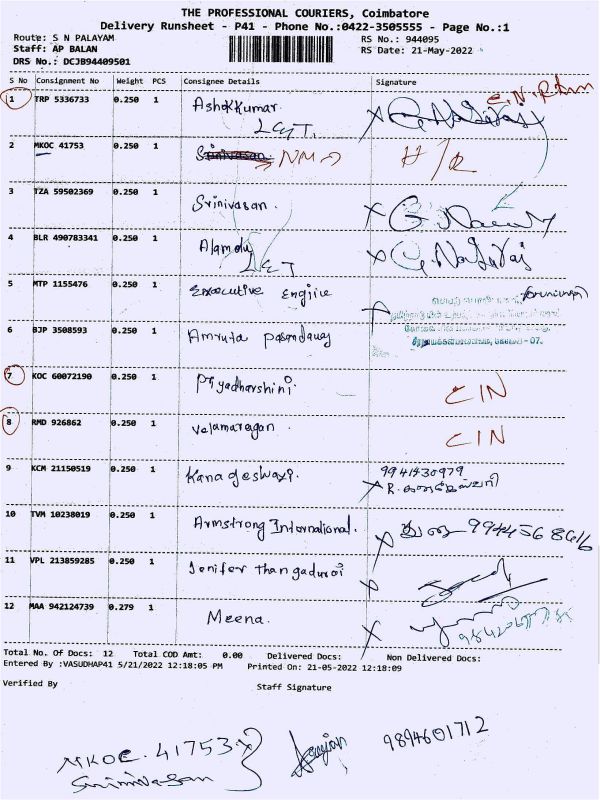 THE PROFESSIONAL COURIERS, Coimbatore
Delivery Runsheet - P41 - Phone No.:0422-3505555 - Page No.:1
Route: S N PALAYAM RS No.: 944095
Staff: AP BALAN RS Date: 21-May-2022
DRS No.: DCJB94409501
S No Consignment No Weight PCS Consignee Details Signature
1 TRP 5336733 0.250 1 Ashokkumar.
2 MKOC 41753 0.250 1 Srinivasan
3 TZA 59502369 0.250 1 Srinivasan.
4 BLR 490783341 0.250 1 Alamelu
5 MTP 1155476 0.250 1 Executive Engiire
6 BJP 3508593 0.250 1 Amruta
7 KOC 60072190 0.250 1 Priyadharshini. CIN
8 RMD 926862 0.250 1 CIN
9 KCM 21150519 0.250 1 Kanageswari. 9941430979
10 TVM 10238019 0.250 1 Armstrong International. 9944568616
11 VPL 213859285 0.250 1 Jenifer thangadurai
12 MAA 942124739 0.279 1 Meena.
Total No. of Docs: 12 Total COD Amt: 0.00 Delivered Docs: Non Delivered Docs:
Entered By :VASUDHAP41 5/21/2022 12:18:05 PM Printed On: 21-05-2022 12:18:09
Verified By Staff Signature
MKOC. 41753 9894601712
Srinivasan